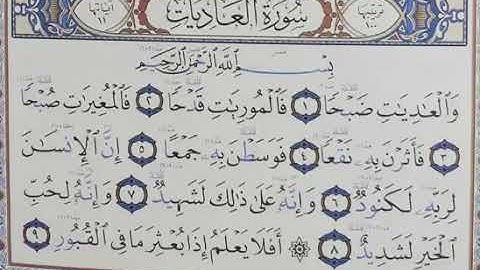 ترتيبها سُورَةُ العَادِيَاتِ آياتها
١١
بِسۡمِ ٱللَّهِ ٱلرَّحۡمَٰنِ ٱلرَّحِيمِ
وَٱلۡعَٰدِيَٰتِ ضَبۡحٗا ١ فَٱلۡمُورِيَٰتِ قَدۡحٗا ٢ فَٱلۡمُغِيرَٰتِ صُبۡحٗا
٣ فَأَثَرۡنَ بِهِۦ نَقۡعٗا ٤ فَوَسَطۡنَ بِهِۦ جَمۡعًا ٥ إِنَّ ٱلۡإِنسَٰنَ
لِرَبِّهِۦ لَكَنُودٞ ٦ وَإِنَّهُۥ عَلَىٰ ذَٰلِكَ لَشَهِيدٞ ٧ وَإِنَّهُۥ لِحُبِّ
ٱلۡخَيۡرِ لَشَدِيدٌ ٨ ۞ أَفَلَا يَعۡلَمُ إِذَا بُعۡثِرَ مَا فِي ٱلۡقُبُورِ ٩